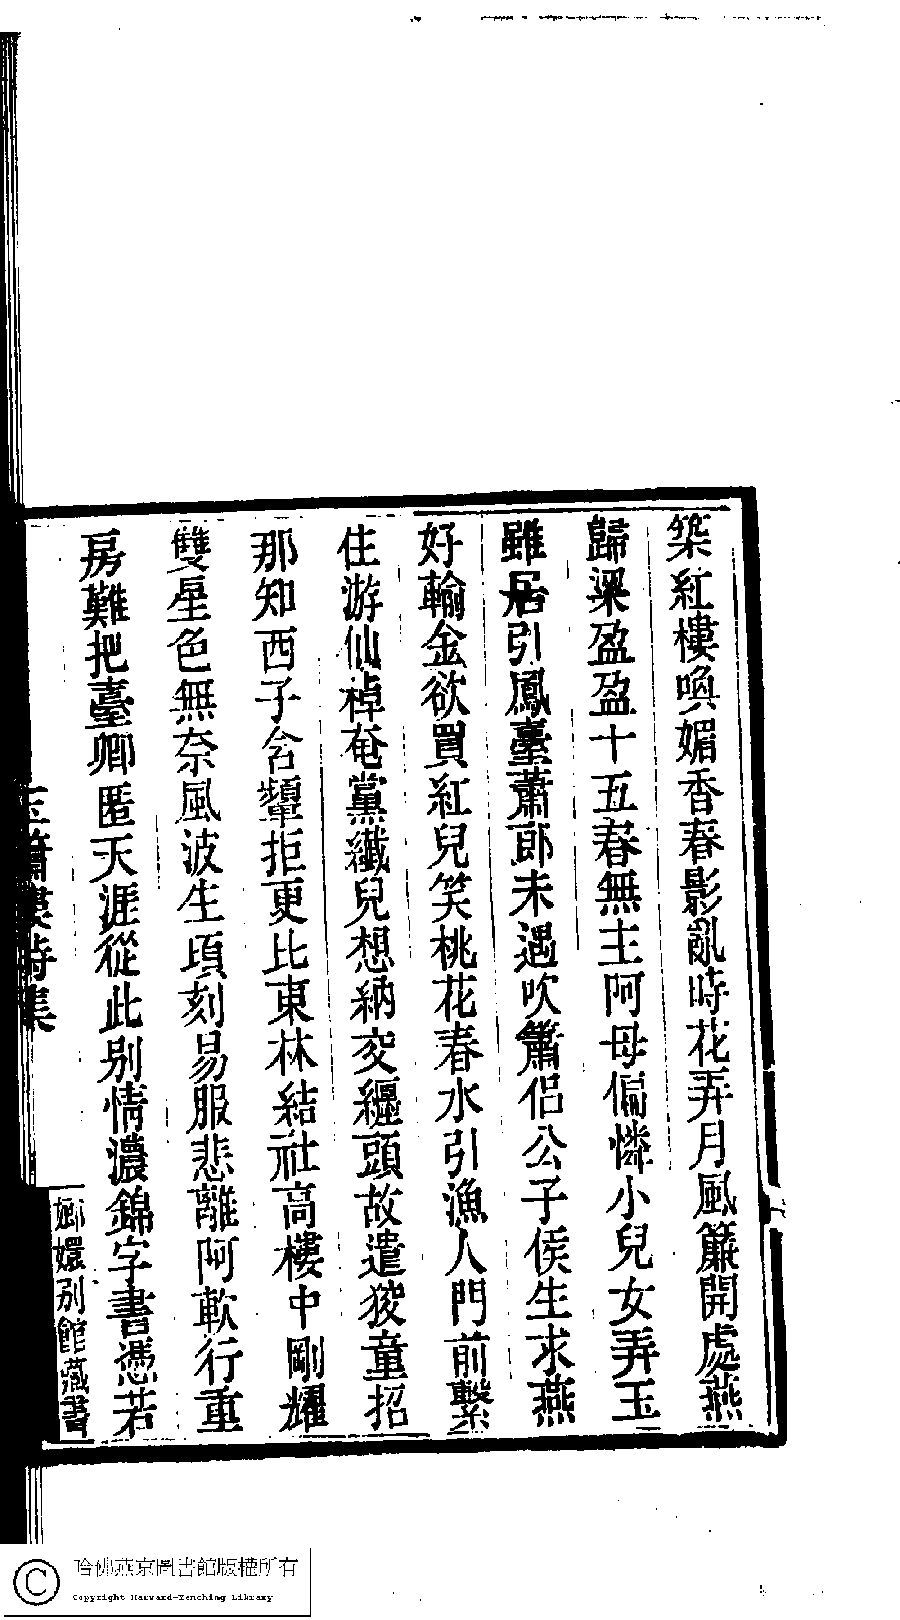 築紅樓喚媚香春影亂時花弄月風簾開處燕
歸梁盈盈十五春無主阿母偏憐小兒女弄玉
雖居引鳳臺蕭郎未遇吹簫侶公子侯生求燕
好輸金欲買紅兒笑桃花春水引漁人門前繫
住游仙棹奄黨纖兒想納交纏頭故遣狡童招
那知西子含顰拒更比東林結社高樓中剛耀
雙星色無奈風波生頃刻易服悲離阿軟行重
房難把臺卿匿天涯從此别情濃錦字書憑若
玉簫樓詩集
嫏嬛别館藏書
哈佛燕京圖書館版權所有
Copyright Harvard-Yenching Library